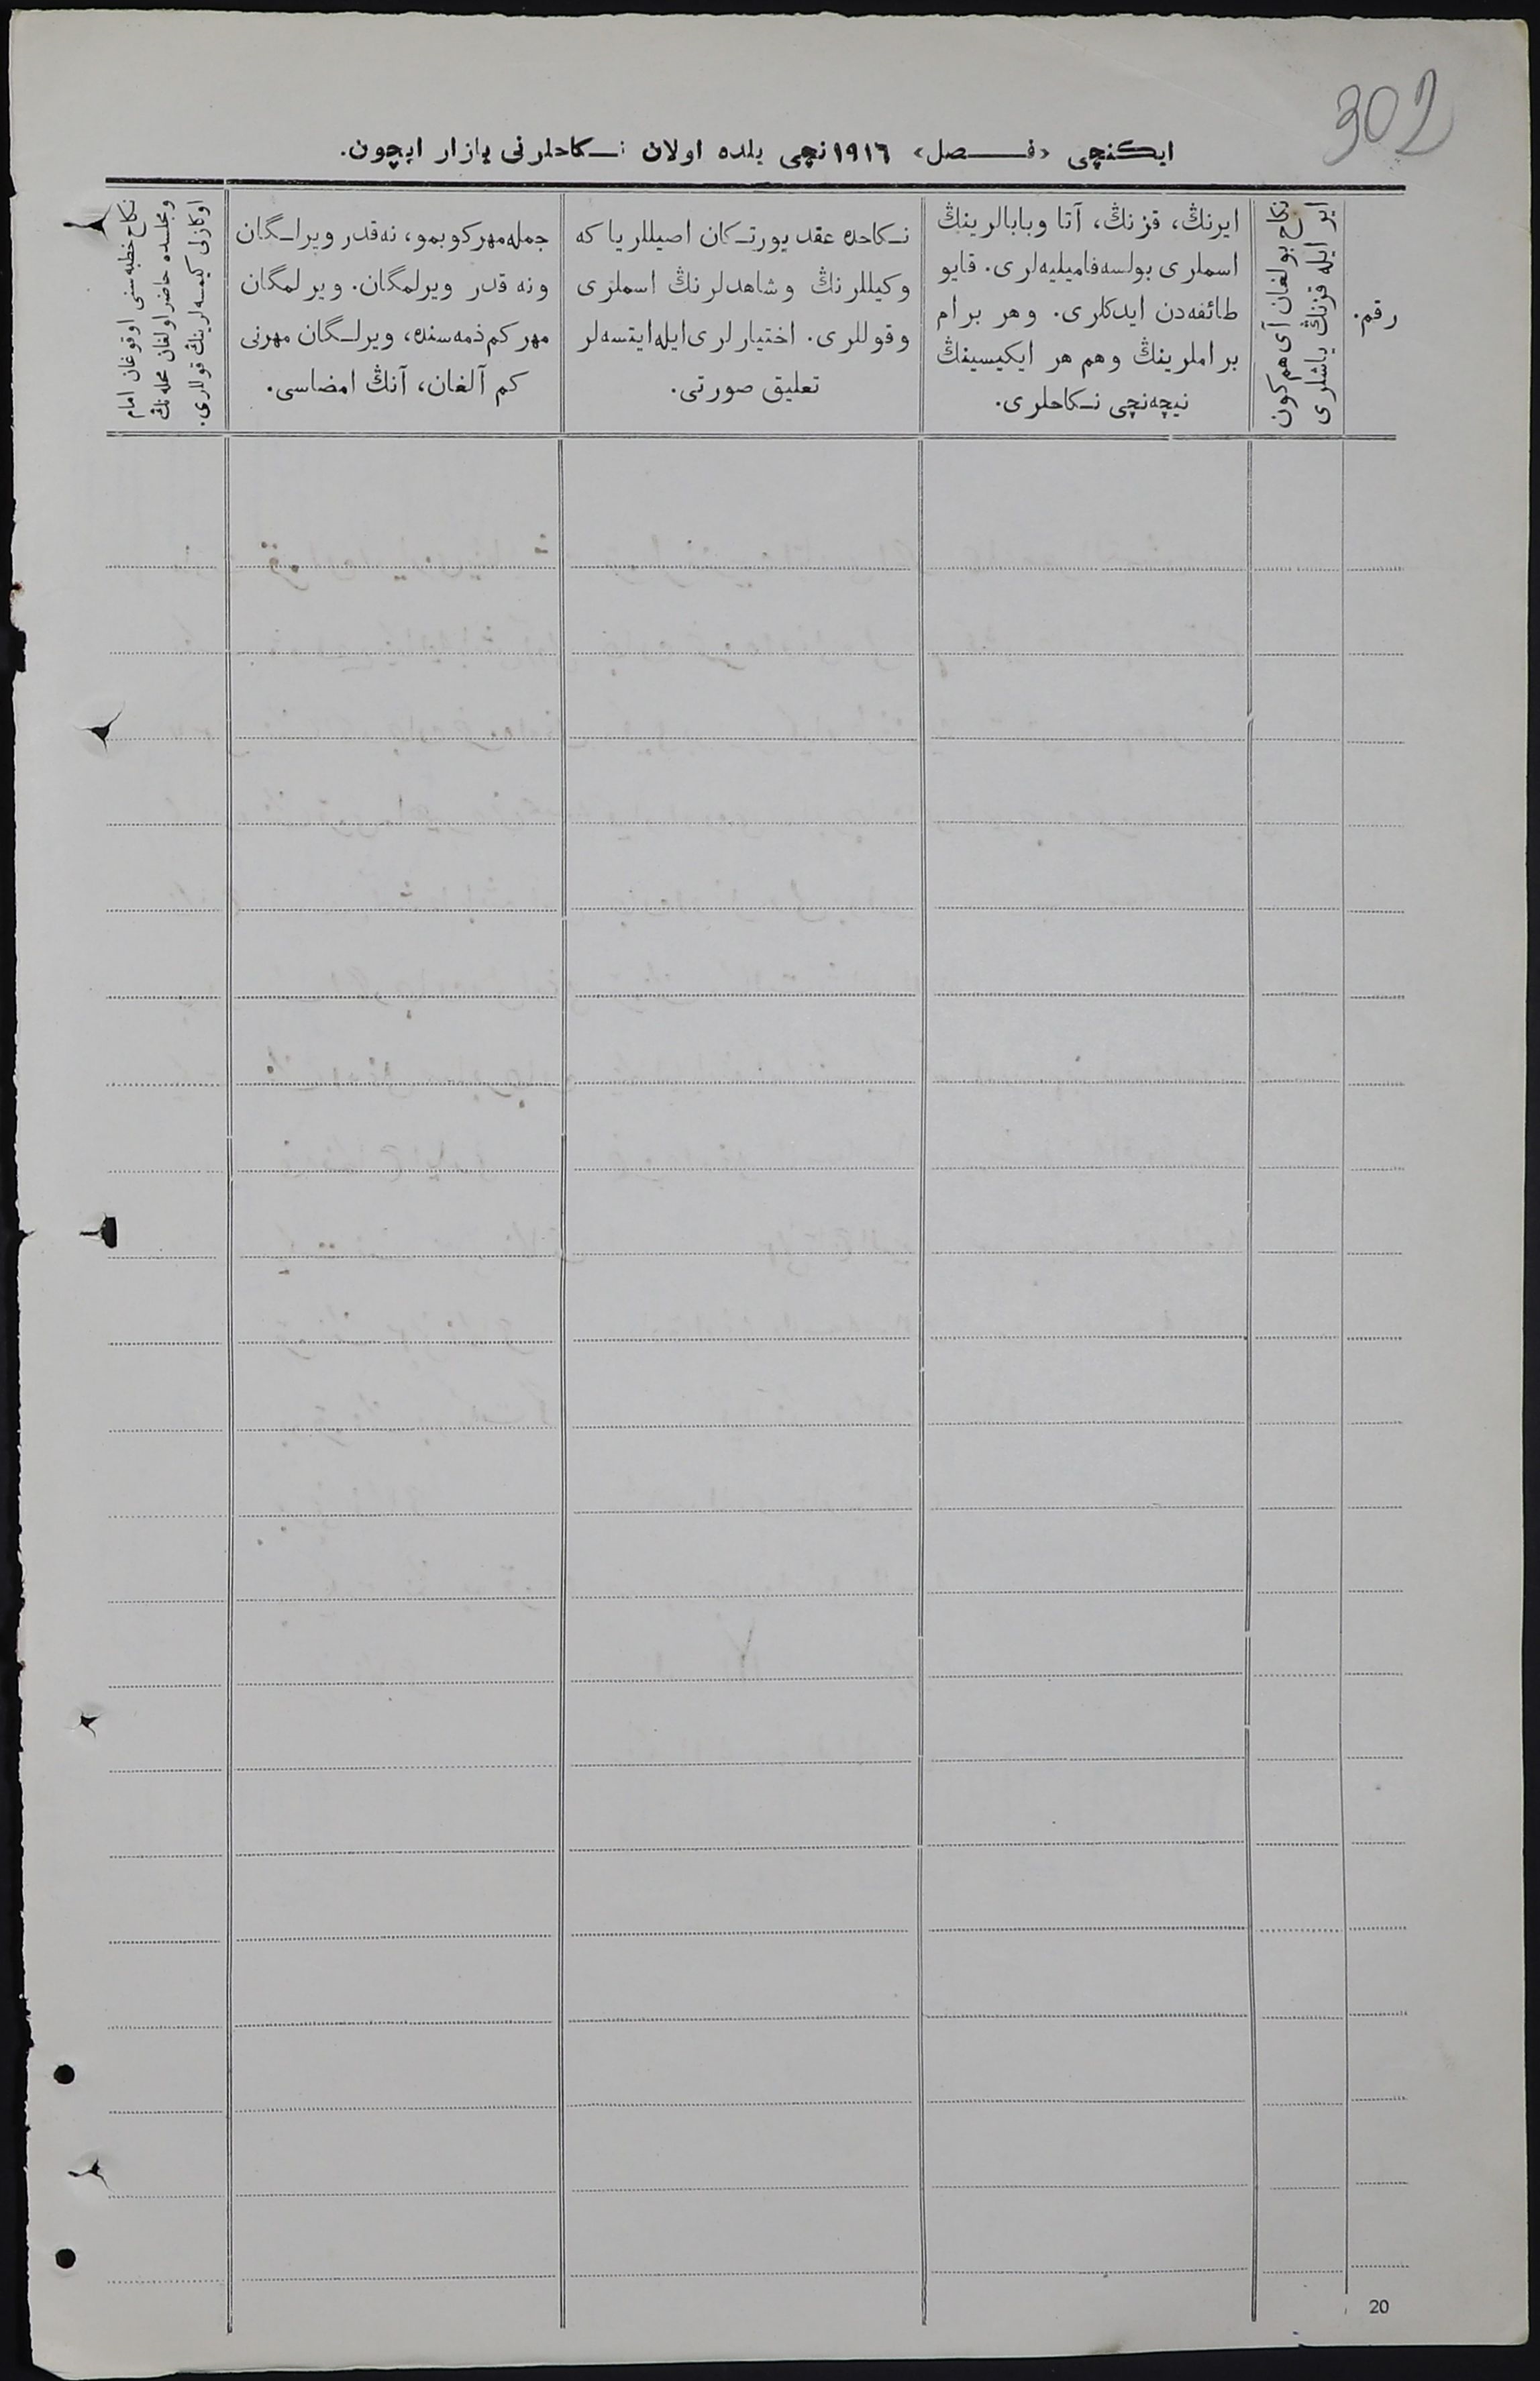 302
ایکنچی «فصل» ١٩١٦نچی یلده اولان نکاحلرنی یازار ایچون.
رقم.
نکاح بولغان آی هم کون
ایر ایله قزنڭ یاشلری
ایرنڭ، قزنڭ، آتا وبابالرینڭ
اسملری بولسه فامیلیه‌لری. قایو
طائفه‌دن ایدکلری. وهر برام
براملرینڭ وهم هر ایکیسینڭ
نیچه‌نچی نکاحلری.
نکاحده عقد یورتکان اصیللر یا که
وکیللرنڭ وشاهدلرنڭ اسملری
وقوللری. اختیارلری ایله ایتسه‌لر
تعلیق صورتی.
جمله مهر کوبمو، نه‌قدر ویرلگان
ونه قدر ویرلمگان. ویرلمگان
مهر کم ذمه‌سنده، ویرلگان مهرنی
کم آلغان، آنڭ امضاسی.
نکاح خطبه‌سنی اوقوغان امام
ومجلسده حاضر اولغان محله‌نڭ
اوکازلی کیمسه‌لرینڭ قوللاری.
20